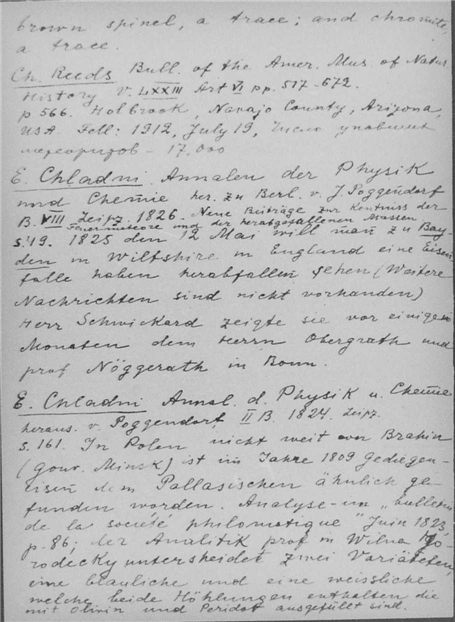 brown spinel, a trace; and chromite,
a trace.
Ch. Reeds Bull. of the Amer. Mus of Natur.
History V. LXXIII Art VI pp. 517-672.
p 566. Holbrook, Navajo County, Arizona,
USA. Fell: 1912, July 19, Число упавших
метеоритов - 17.000
E. Chladni. Annalen der Physik
und Chemie her. zu Berl. v. J Poggendorf
B. VIII Leipz. 1826. Neue Beiträge zur Kentniss der
Feuermeteore und der herabgefallenen Massen
s. 19. 1825 den 12 Mai will man zu Bay-
den in Wiltshire in England eine Eisen
falle haben herabfallen sehen (Weitere
Nachrichten sind nicht vorhanden)
Herr Schwickard zeigte sie vor einigen
Monaten dem Herrn Obergrath und
prof Nöggerath in Bonn.
E. Chladni Annal. d. Physik u. Chemie
heraus. v. Poggendorf II B. 1824. Leipz.
s. 161. In Polen nicht weit von Brahin
(Gouv. Minsk) ist im Jahre 1809 Gediegen-
eisen dem Pallasischen ähnlich ge-
funden worden. Analyse-un "bulletin
de la societé philomatique" Juin 1823,
p. 86; der Analitik prof in Wilna Ho
rodecky untersheidet zwei Variäteten,
eine blauliche und eine weissliche
welche beide Höhlungen enthalten die
mit Olivin und Peridot ausgefüllt sind.